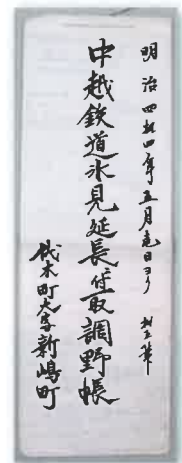 明治四拾四年五月壱日ヨリ
中越鉄道氷見延長位取調野帳
伏木町大字新嶋町